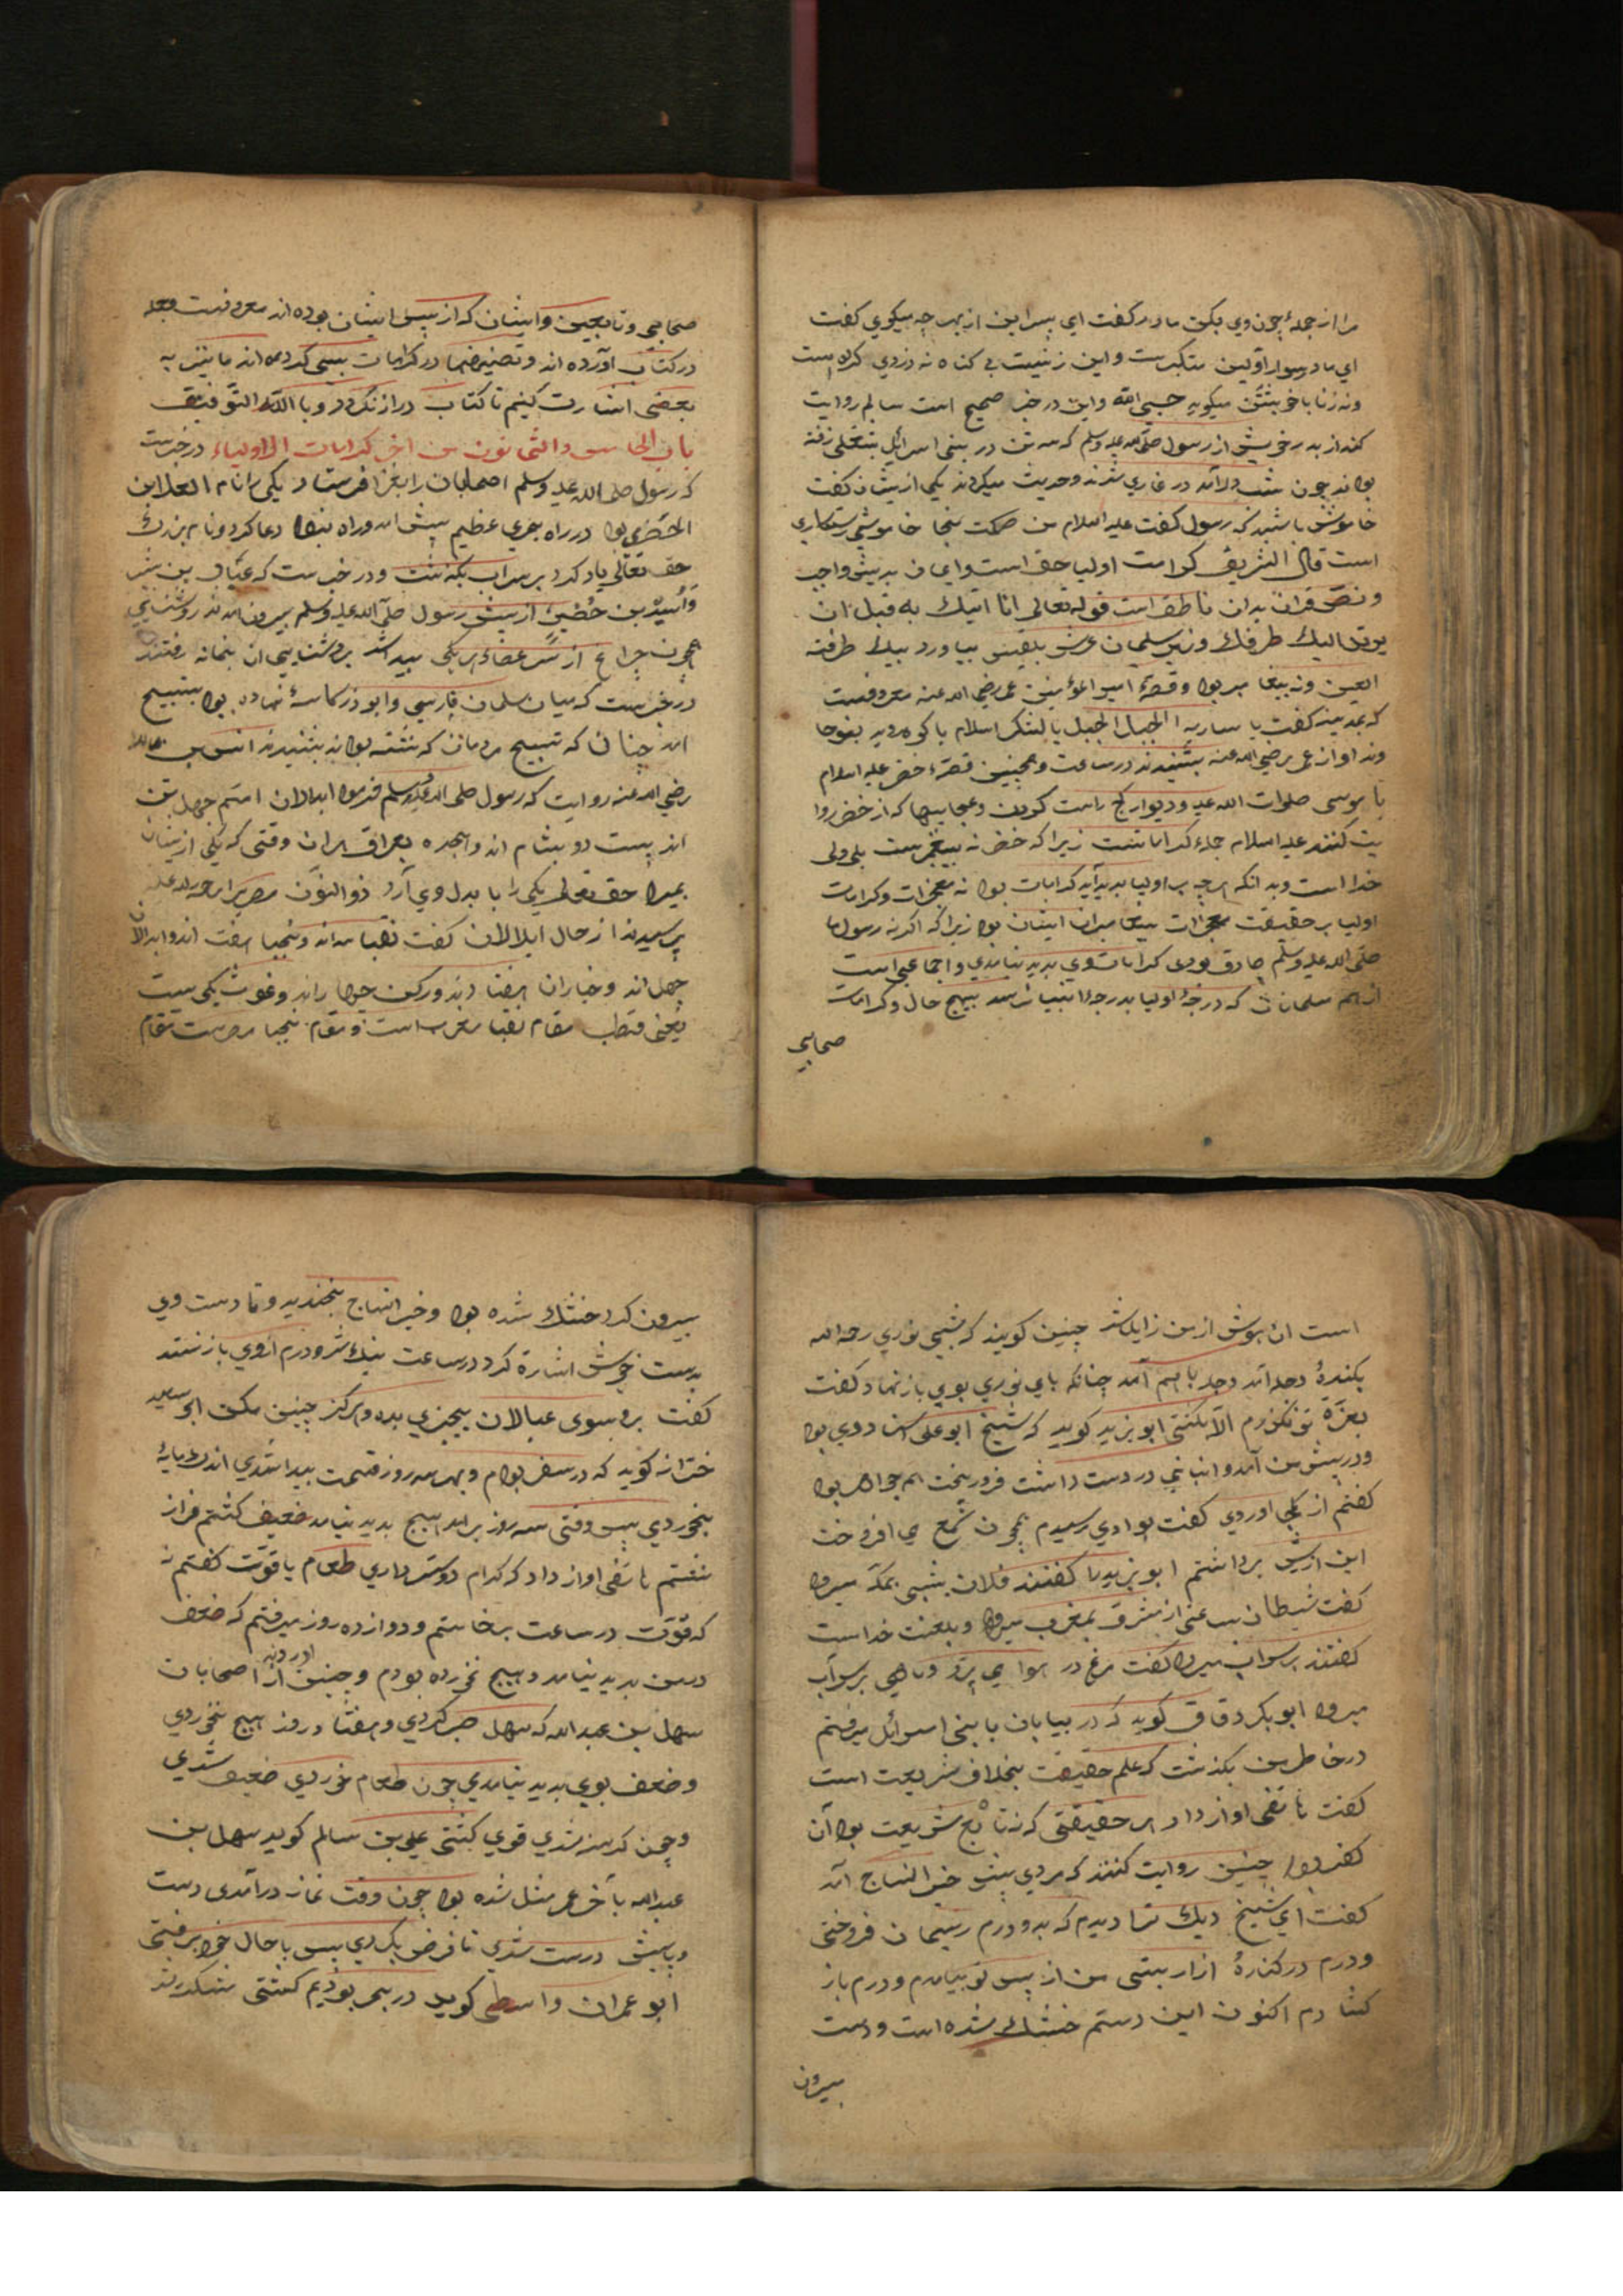 مرا از جملهٔ چون وي مكن مادر كفت اي پسر اين از بهر چه ميكوي كفت
اي مادر سوار اولين متكبرست و اين زنيست بي كناه نه دزدي كرده است
و نه زنا با خويشتن ميكويد حسبي الله و اين در خبر صحيح است سالم روايت
كند از پدر خويش از رسول صلى الله عليه وسلم كه سه تن در بني اسرائيل بشغلي رفته
بودند چون شب درآمد در غاري شدند و حديث ميكردند يكي ازيشان كفت
خاموش باشيد كه رسول كفت عليه السلام من صمت نجا خاموشي رستكاري
است قال الشريف كرامت اوليا حق است و ايمان بدينش واجب
و نصّ قران بدان ناطق است قوله تعالى انا اتيك به قبل ان
يرتد اليك طرفك وزير سليمان عرش بلقيس بياورد بيك طرفة
العين و نه پيغامبر بود و قصهٔ امير المؤمنين عمر رضي الله عنه معروفست
كه بمدينه كفت يا ساريه الجبل الجبل يا لشكر اسلام با كوه رويد بفوجا
وند اواز عمر رضي الله عنه بشنيدند در ساعت و همچنين قصهٔ خضر عليه السلام
با موسى صلوات الله عليه و ديوار كج راست كردن و عجايبها كه از خضر روا
يت كنند عليه السلام جملهٔ كراماتست زيرا كه خضر نه پيغمبرست بلي ولي
خدا است و بدانكه هر چه بر اوليا پديد آيد كرامات بود نه معجزات و كرامات
اوليا بر حقيقت معجزات پيغامبران ايشان بود زيرا كه اكر نه رسول ما
صلى الله عليه وسلم صادق بودي كرامات وي پديد نيامدي و اجماعي است
از هم مسلمانان كه درجهٔ اوليا بدرجهٔ انبيا نرسد بهيچ حال و كرامات
صحابي
صحابي و تابعين و ايشان كه از پس ايشان بوده اند معروفست و همه
در كتاب آورده اند و تصنيفها در كرامات بسي كرده اند ما نيز به
بعضي اشارت كنيم تا كتاب دراز نكردد و بالله التوفيق
باب الخامس والثمانون من اخر كرامات الاولياء در خبرست
كه رسول صلى الله عليه وسلم اصحابان را بغزا فرستاد يكي را نام العلا ابن
الحضرمي بود در راه بحري عظيم پيش امد و راه نبود دعا كرد و نام بزرك
حق تعالى ياد كرد بر سر آب بكذشت و در خبرست كه عبّاد بن بشر
و اُسَيد بن حُضَيرْ از پيش رسول صلى الله عليه وسلم بيرون امدند روشنايي
همچون چراغ از سر عصاء هر يكي پيدا شد بروشنايي ان بخانه رفتند
در خبرست كه ميان سلمان فارسي و ابوذر كاسهٔ نهاده بود بتسبيح
امد چنانكه تسبيح مردمان كه نشسته بودند بشنيدند انس بن مالك
رضي الله عنه روايت كه رسول صلى الله عليه وسلم فرمود ابدالان امتم چهل تن
اند بيست دو بشام اند و هجده بعراق هر ان وقتي كه يكي ازيشان
بميرد حق تعالى يكي را با بدل وي آرد ذو النون مصري را رحمة الله عليه
پرسيدند از حال ابدالان كفت نقبا سه اند و نجبا هفت اند و ابدالان
چهل اند و خياران هفتاد اند و ركن چهار اند و غوث يكي است
يعني قطب مقام نقبا مغرب است و مقام نجبا مصرست مقام
است ان هوش از من زايل شد چنين كويند كه شبي نوري رحمه الله
بكنارهٔ دجله آمد دجله با هم آمد چنانكه پاي نوري بوي باز نهاد كفت
بعزّة تو نكذرم الّا بكشتي ابو يزيد كويد كه شيخ ابو علي استاد وي بود
و در پيش من آمد و انباني در دست داشت فرو ريخت هم جواهر بود
كفتم از كجا اوردي كفت بوادي رسيدم همچون شمع مي افروخت
اين ازيش برداشتم ابو يزيد را كفتند فلان بشبي بمكه ميرود
كفت شيطان بساعتي از مشرق بمغرب ميرود و بلعنت خداست
كفتند بر سر اب ميرود كفت مرغ در هوا مي پرد و ماهي بر سر آب
ميرود ابو بكر دقاق كويد كه در بيابان با بني اسرائل ميرفتم
در خاطر من بكذشت كه علم حقيقت بخلاف شريعت است
كفت هاتفي اواز داد هر حقيقتي كه نه تابع شريعت بود آن
كفر بود چنين روايت كنند كه مردي پيش خير النساج آمد
كفت اي شيخ ديك ترا ديدم كه بدو درم ريسمان فروختي
و درم در كنارهٔ ازار بستي من از پس تو بيامدم و درم باز
كشادم اكنون اين دستم خشك شده است و دست
بيرون
بيرون كرد خشك شده بود و خير النساج بخنديد و تا دست وي
بدست خويش اشارة كرد در ساعت نيك شد و درم ازوي باز ستد
كفت برو سوى عيالان بچيزي بده و هركز چنين مكن ابو سعيد
خرّاز كويد كه در سفر بودم و بهر سه روز قسمت پيدا شدي اندك مايهٔ
بخوردي پس وقتي سه روز برامد هيچ پديد نيامد ضعيف كشتم فراز
نشستم هاتفي اواز داد كه كدام دوستر داري طعام يا قوّت كفتم نه
كه قوّت در ساعت برخاستم و دوازده روز ميرفتم كه ضعف
در من پديد نيامد و هيچ نخورده بودم و چنين اورده اند از اصحابان
سهل بن عبد الله كه سهل صبر كردي و هفتاد روز هيچ نخوردي
و ضعف بوي پديد نيامدي چون طعام خوردي ضعيف شدي
و چون كرسنه شدي قوي كشتي علي بن سالم كويد سهل بن
عبد الله با آخر عمر مثل شده بود چون وقت نماز درآمدى دست
و پايش درست شدي تا فرض بكردي پس با حال خود برفتي
ابو عمران واسطي كويد در بحر بوديم كشتي بشكست